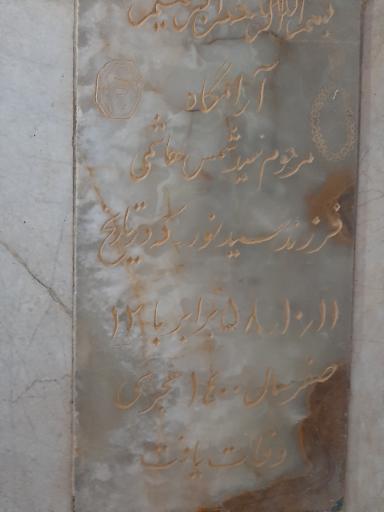 بسم الله الرحمن الرحیم
آرامگاه
مرحوم سید شمس هاشمی
فرزند سید نور که در تاریخ
۱۱/۱۰/۵۸ برابر با ۱۲
صفر سال ۱۴۰۰ هجری
وفات یافت